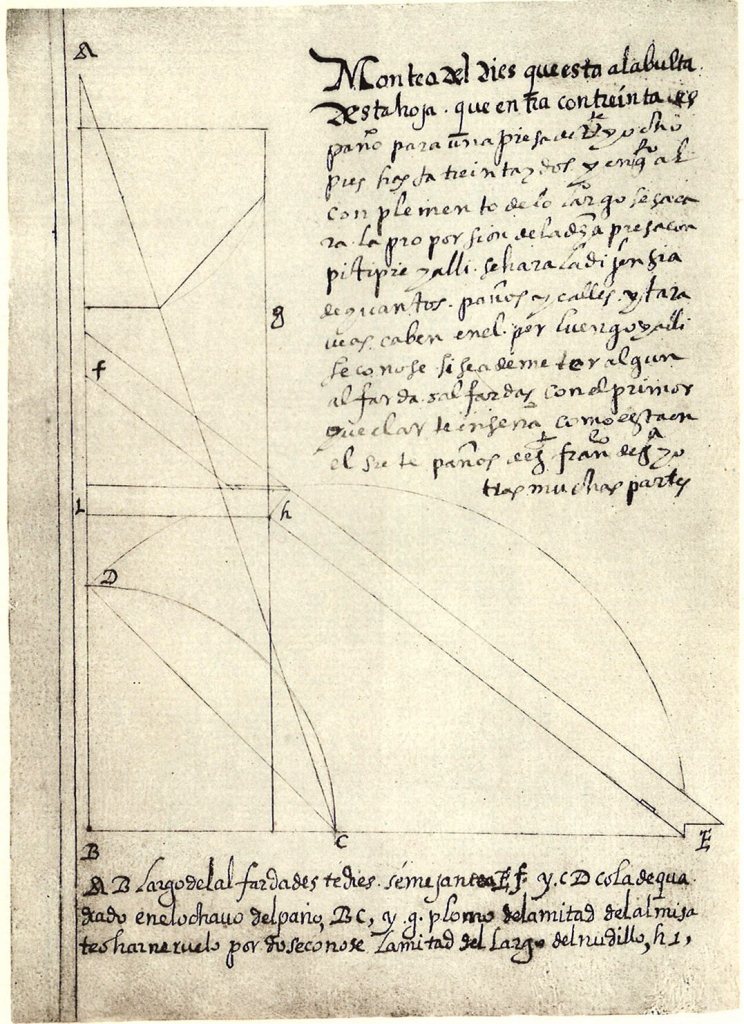 A
Montea del dies que esta a la buelta
desta hoja. que entra con treinta
paño para una piesa de
pies hasta treinta y dos, y
con plemento de lo largo se saca
ra. la proporsion de la presa con
pitipie y alli. se hara la di
de quantos. paños y calles. y tara
veas. caben en el. por luengo y alli
se conose si se a de meter algun
alfarda. salfardas con el primor
que el arte inseña como esta en
el siete paños
tras muchas partes
g
f
L
h
D
B
C
E
A B largo del alfarda deste dies. semejante a E, f. y. c D cola de qua
drado en el ochavo del paño, B C, y. g. plomo de la mitad del almisa
te o harneruelo por do se conose la mitad del largo del nudillo, h 1,